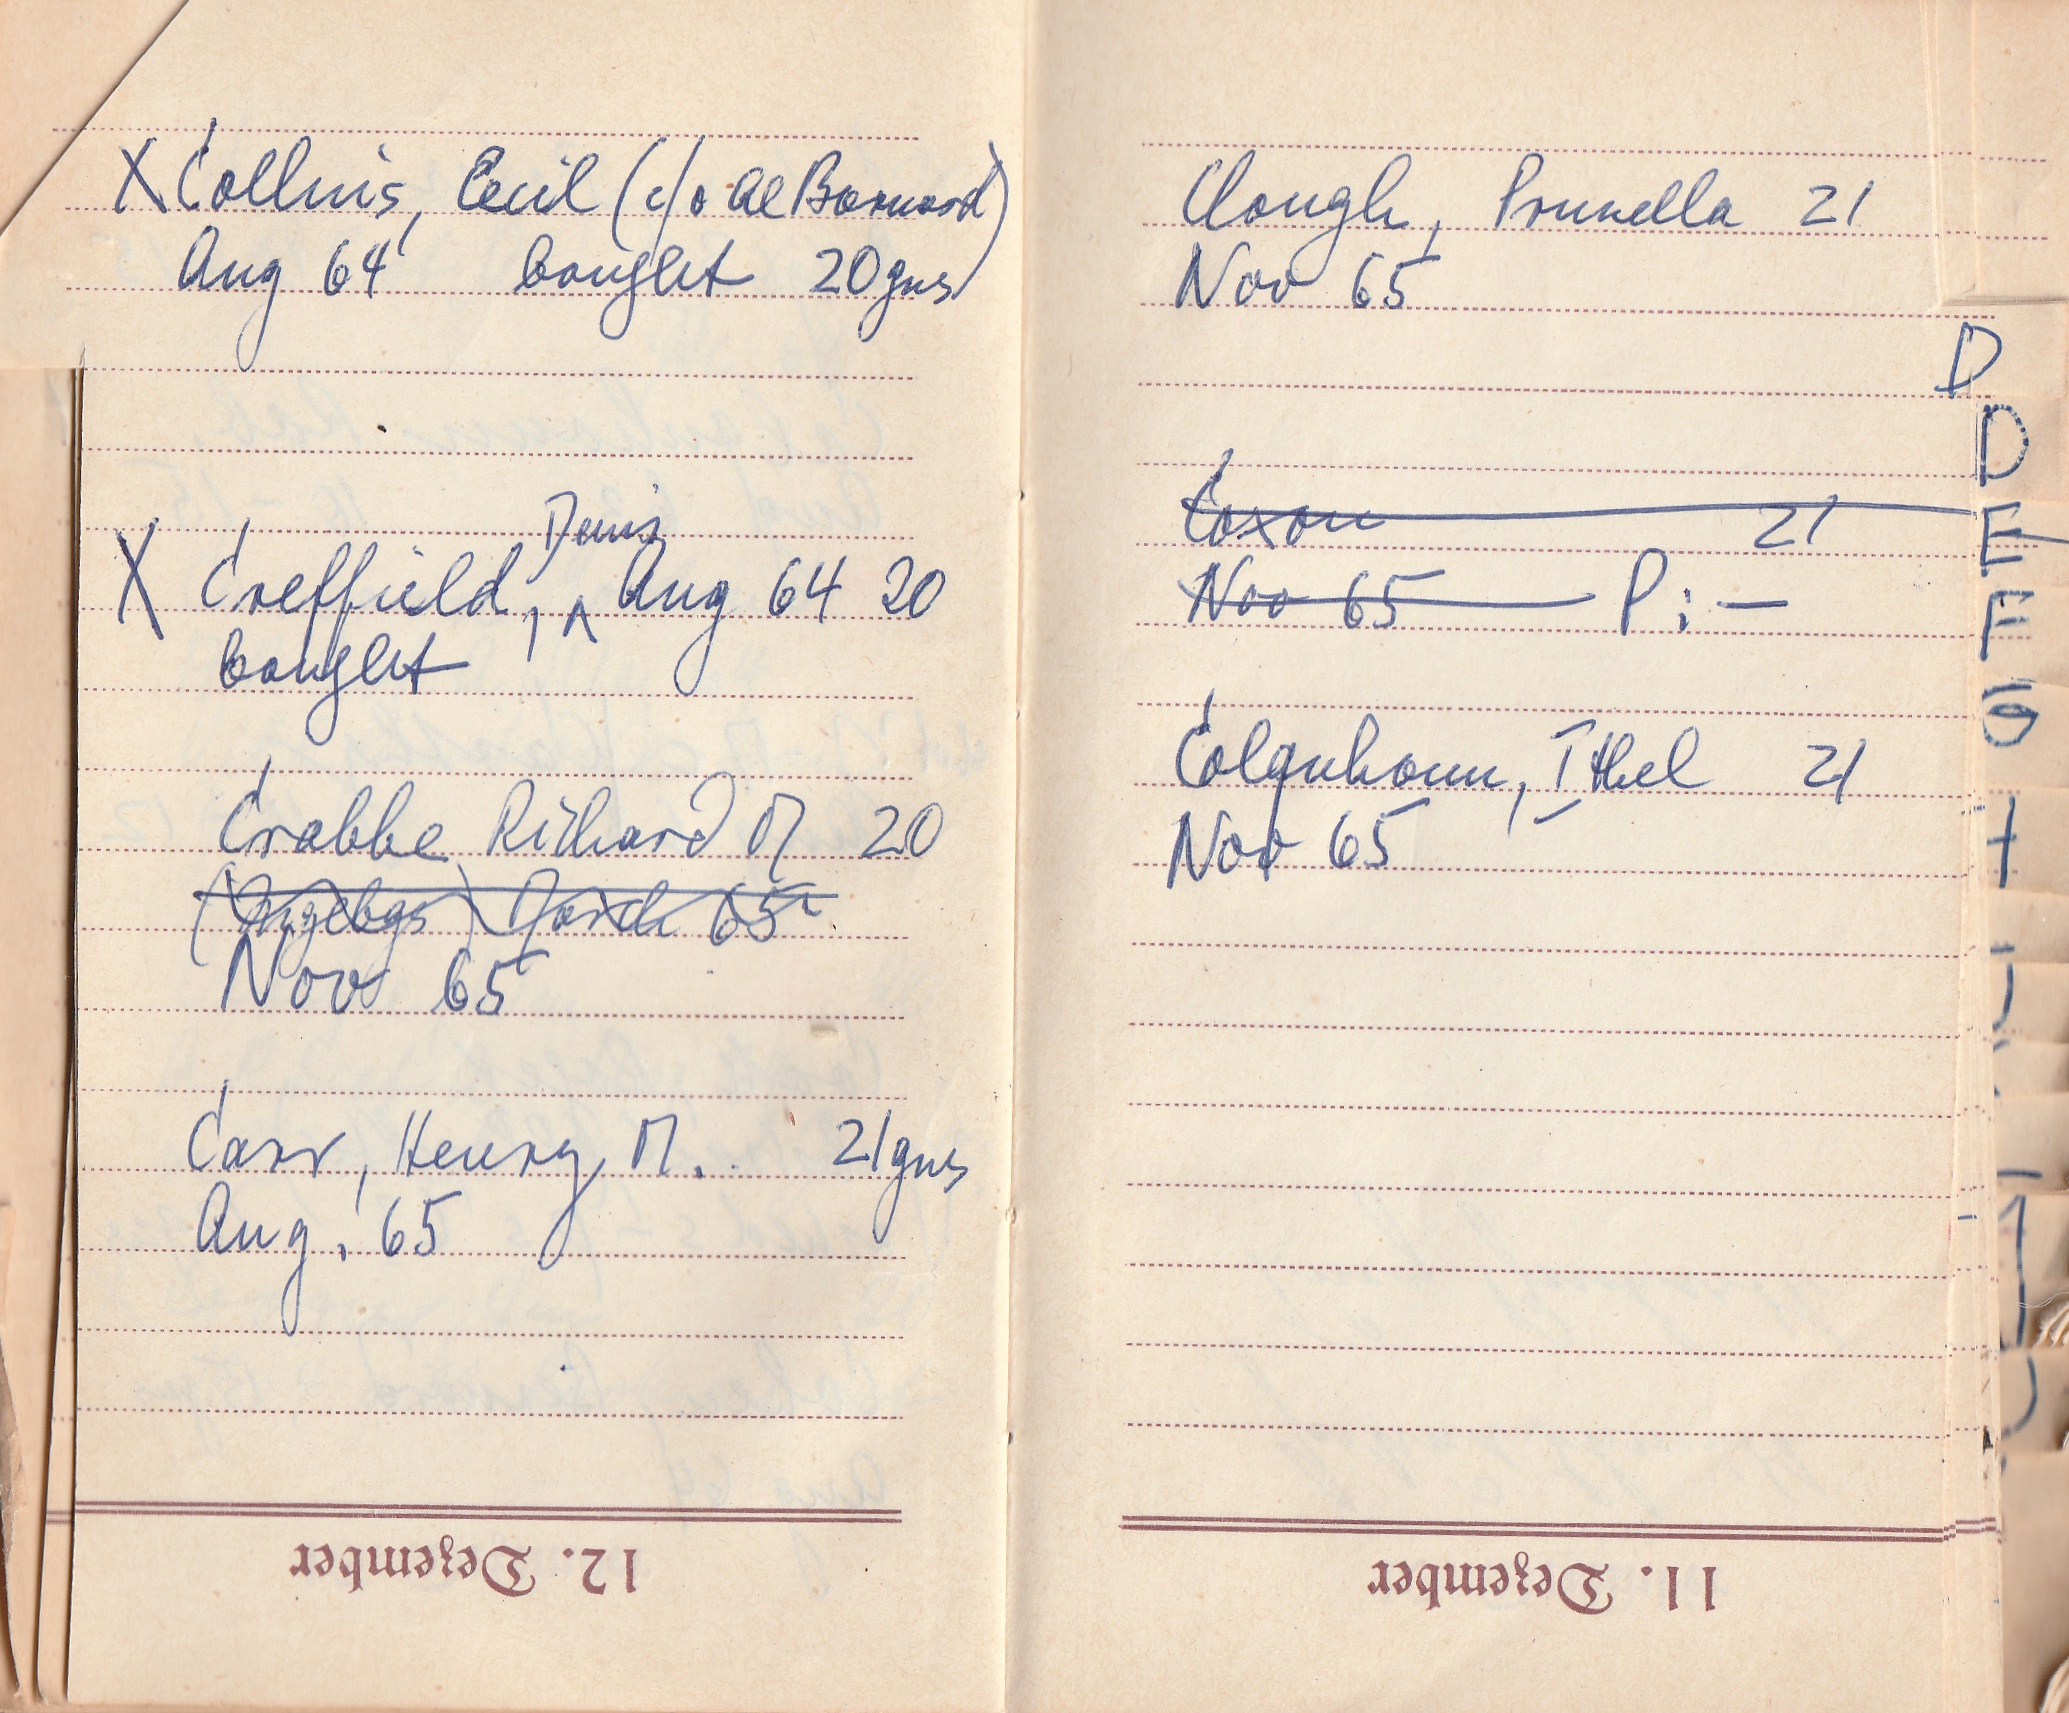 X Collins, Cecil (c/o Al Barnard)
Aug 64 bought 20gns
X Creffield, Denis Aug 64 20
bought
Crabbe, Richard M 20
March 65
Nov 65
Carr, Henry M. 21gns
Aug. 65
12. Dezember
Clough, Prunella 21
Nov 65
Coxon 21
Nov 65 P: —
Colquhoun, Ithel 21
Nov 65
11. Dezember
D
D
E
F
G